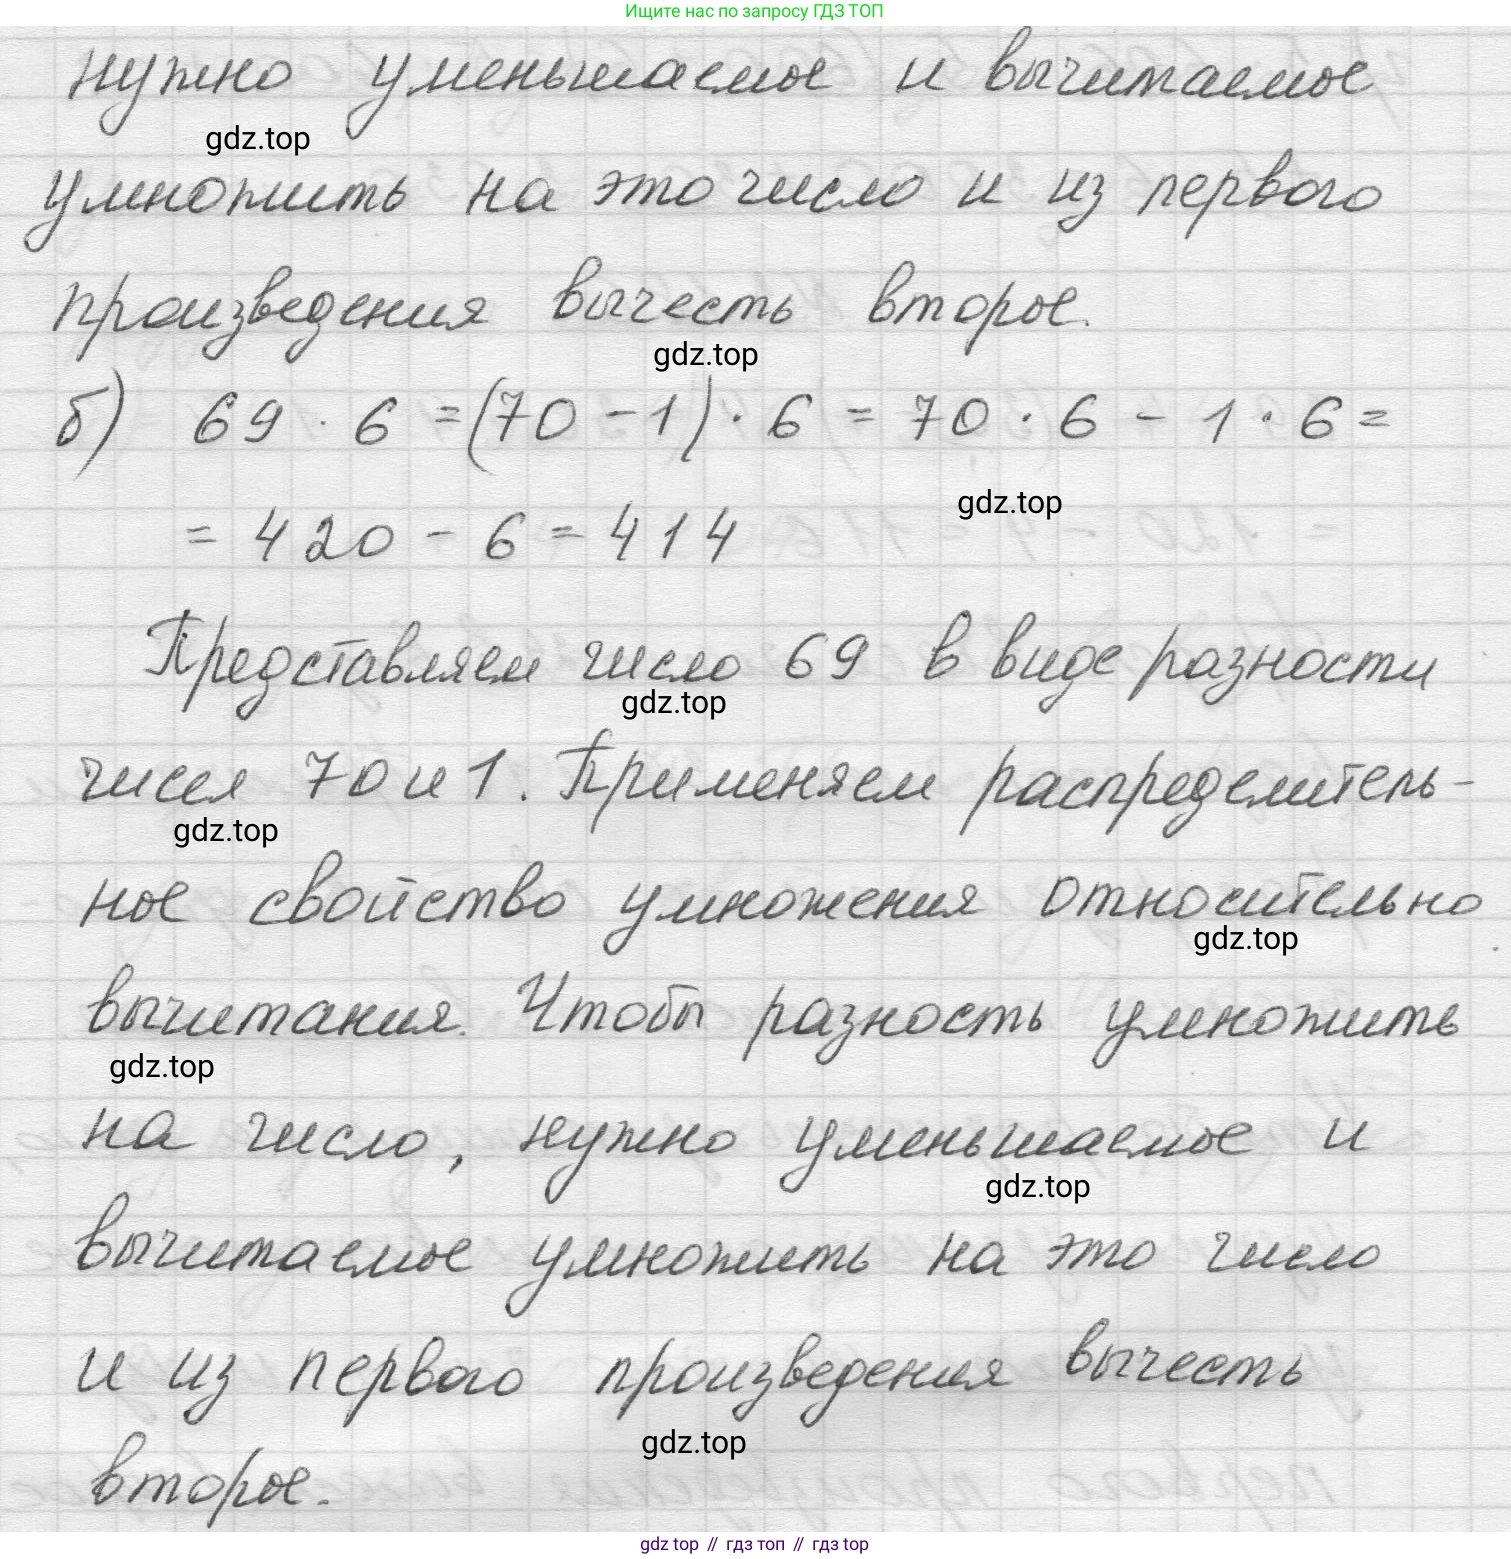 Ищите нас по запросу ГДЗ ТОП
нужно уменьшаемое и вычитаемое
gdz.top
умножить на это число и из первого
произведения вычесть второе.
gdz.top
б) 69 · 6 = (70 - 1) · 6 = 70 · 6 - 1 · 6 =
gdz.top
= 420 - 6 = 414
Представляем число 69 в виде разности
gdz.top
чисел 70 и 1. Применяем распределитель-
gdz.top
ное свойство умножения относительно
gdz.top
вычитания. Чтобы разность умножить
gdz.top
на число, нужно уменьшаемое и
gdz.top
вычитаемое умножить на это число
и из первого произведения вычесть
gdz.top
второе.
gdz top // гдз топ // гдз top